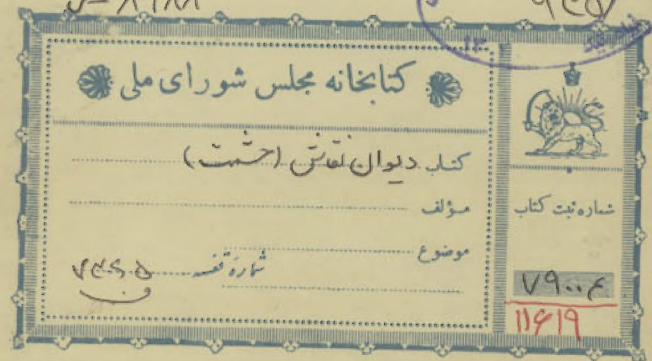 کتابخانه مجلس شورای ملی
کتاب دیوان نقاش (حشمت)
مؤلف
موضوع
شماره قفسه ۷۳۶۵
ف
شماره ثبت کتاب
۷۹۰۰۴
۱۱۶۱۹